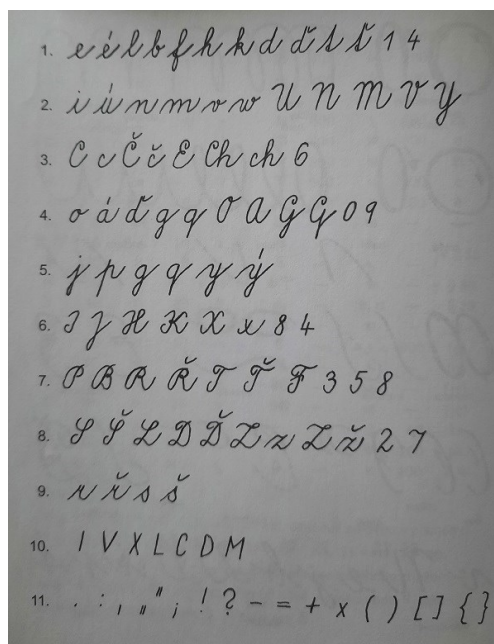 1. e é l b f h k d ď t ť 1 4
2. i ú n m v w U N M V Y
3. C c Č č E Ch ch 6
4. o á ď g q O A G G 0 9
5. j p g q y ý
6. I J H K X x 8 4
7. P B R Ř T Ť F 3 5 8
8. S Š L D Ď Z z Z ž 2 7
9. r ř s š
10. I V X L C D M
11. . : , „ " ; ! ? - = + x ( ) [ ] { }